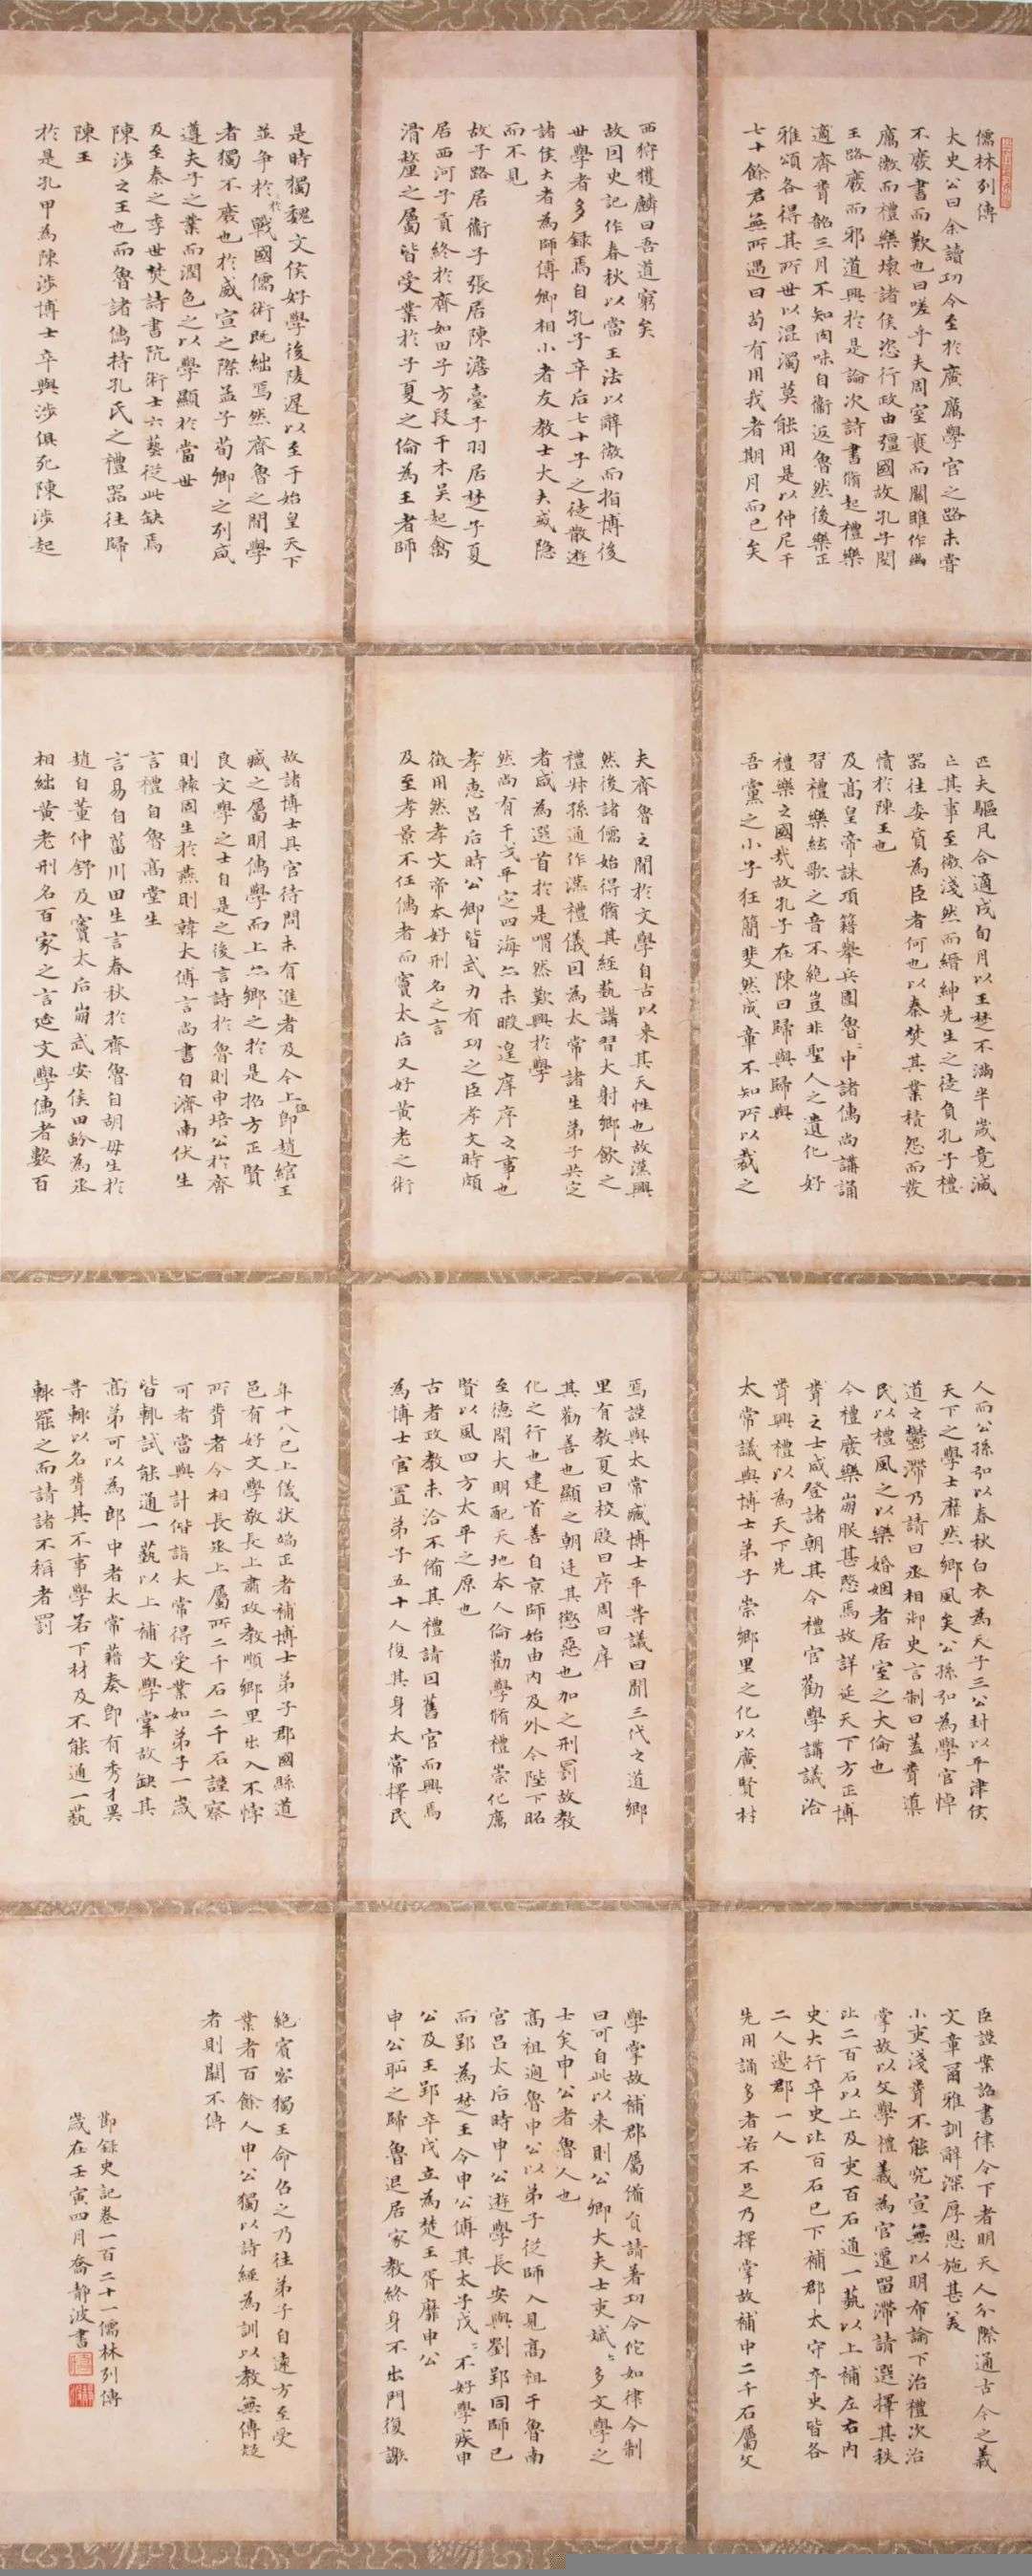 儒林列傳
太史公曰余讀功令至於廣厲學官之路未嘗
不廢書而歎也曰嗟乎夫周室衰而關雎作幽
厲微而禮樂壞諸侯恣行政由彊國故孔子閔
王路廢而邪道興於是論次詩書脩起禮樂
適齊聞韶三月不知肉味自衞返魯然後樂正
雅頌各得其所世以混濁莫能用是以仲尼干
七十餘君無所遇曰苟有用我者期月而已矣
西狩獲麟曰吾道窮矣
故因史記作春秋以當王法以辭微而指博後
世學者多録焉自孔子卒后七十子之徒散遊
諸侯大者為師傅卿相小者友教士大夫或隐
而不見
故子路居衞子張居陳澹臺子羽居楚子夏
居西河子貢終於齊如田子方段干木吴起禽
滑釐之屬皆受業於子夏之倫為王者師
是時獨魏文侯好學後陵遲以至于始皇天下
並争於戰國儒術既絀焉然齊魯之間學
者獨不廢也於威宣之際孟子荀卿之列咸
遵夫子之業而潤色之以學顯於當世
及至秦之季世焚詩書阬術士六藝從此缺焉
陳涉之王也而魯諸儒持孔氏之禮器往歸
陳王
於是孔甲為陳涉博士卒與涉俱死陳涉起
匹夫驅凡合適戍旬月以王楚不滿半歲竟滅
亡其事至微淺然而縉紳先生之徒負孔子禮
器往委質為臣者何也以秦焚其業積怨而發
憤於陳王也
及高皇帝誅項籍舉兵圍魯〻中諸儒尚講誦
習禮樂絃歌之音不絶豈非聖人之遺化好
禮樂之國哉故孔子在陳曰歸與歸與
吾黨之小子狂簡斐然成章不知所以裁之
夫齊魯之閒於文學自古以来其天性也故漢興
然後諸儒始得脩其經藝講習大射鄉飲之
禮叔孫通作漢禮儀因為太常諸生弟子共定
者咸為選首於是喟然歎興於學
然尚有干戈平定四海亦未暇遑庠序之事也
孝惠吕后時公卿皆武力有功之臣孝文時頗
徵用然孝文帝本好刑名之言
及至孝景不任儒者而竇太后又好黄老之術
故諸博士具官待問未有進者及今上即位趙綰王
臧之屬明儒學而上亦鄉之於是招方正賢
良文學之士自是之後言詩於魯則申培公於齊
則轅固生於燕則韓太傅言尚書自濟南伏生
言禮自魯高堂生
言易自菑川田生言春秋於齊魯自胡毋生於
趙自董仲舒及竇太后崩武安侯田蚡為丞
相絀黄老刑名百家之言延文學儒者數百
人而公孫弘以春秋白衣為天子三公封以平津侯
天下之學士靡然鄉風矣公孫弘為學官悼
道之鬱滯乃請曰丞相御史言制曰蓋聞導
民以禮風之以樂婚姻者居室之大倫也
今禮廢樂崩朕甚愍焉故詳延天下方正博
聞之士咸登諸朝其令禮官勸學講議洽
聞興禮以為天下先
太常議與博士弟子崇鄉里之化以廣賢材
焉謹與太常臧博士平等議曰聞三代之道鄉
里有教夏曰校殷曰序周曰庠
其勸善也顯之朝廷其懲惡也加之刑罰故教
化之行也建首善自京師始由内及外今陛下昭
至德開大明配天地本人倫勸學脩禮崇化厲
賢以風四方太平之原也
古者政教未洽不備其禮請因舊官而興焉
為博士官置弟子五十人復其身太常擇民
年十八已上儀狀端正者補博士弟子郡國縣道
邑有好文學敬長上肅政教順鄉里出入不悖
所聞者令相長丞上屬所二千石二千石謹察
可者當與計偕詣太常得受業如弟子一歲
皆輒試能通一藝以上補文學掌故缺其
高弟可以為郎中者太常藉奏即有秀才異
等輒以名聞其不事學若下材及不能通一藝
輒罷之而請諸不稱者罰
臣謹案詔書律令下者明天人分際通古今之義
文章爾雅訓辭深厚恩施甚美
小吏淺聞不能究宣無以明布諭下治禮次治
掌故以文學禮義為官遷留滯請選擇其秩
比二百石以上及吏百石通一藝以上補左右内
史大行卒史比百石已下補郡太守卒史皆各
二人邊郡一人
先用誦多者若不足乃擇掌故補中二千石屬文
學掌故補郡屬備員請著功令佗如律令制
曰可自此以来則公卿大夫士吏斌〻多文學之
士矣申公者魯人也
高祖過魯申公以弟子從師入見高祖于魯南
宫吕太后時申公遊學長安與劉郢同師已
而郢為楚王令申公傅其太子戊〻不好學疾申
公及王郢卒戊立為楚王胥靡申公
申公恥之歸魯退居家教終身不出門復謝
絶賓客獨王命召之乃往弟子自遠方至受
業者百餘人申公獨以詩經為訓以教無傳疑
者則闕不傳
節録史記卷一百二十一儒林列傳
歲在壬寅四月喬靜波書